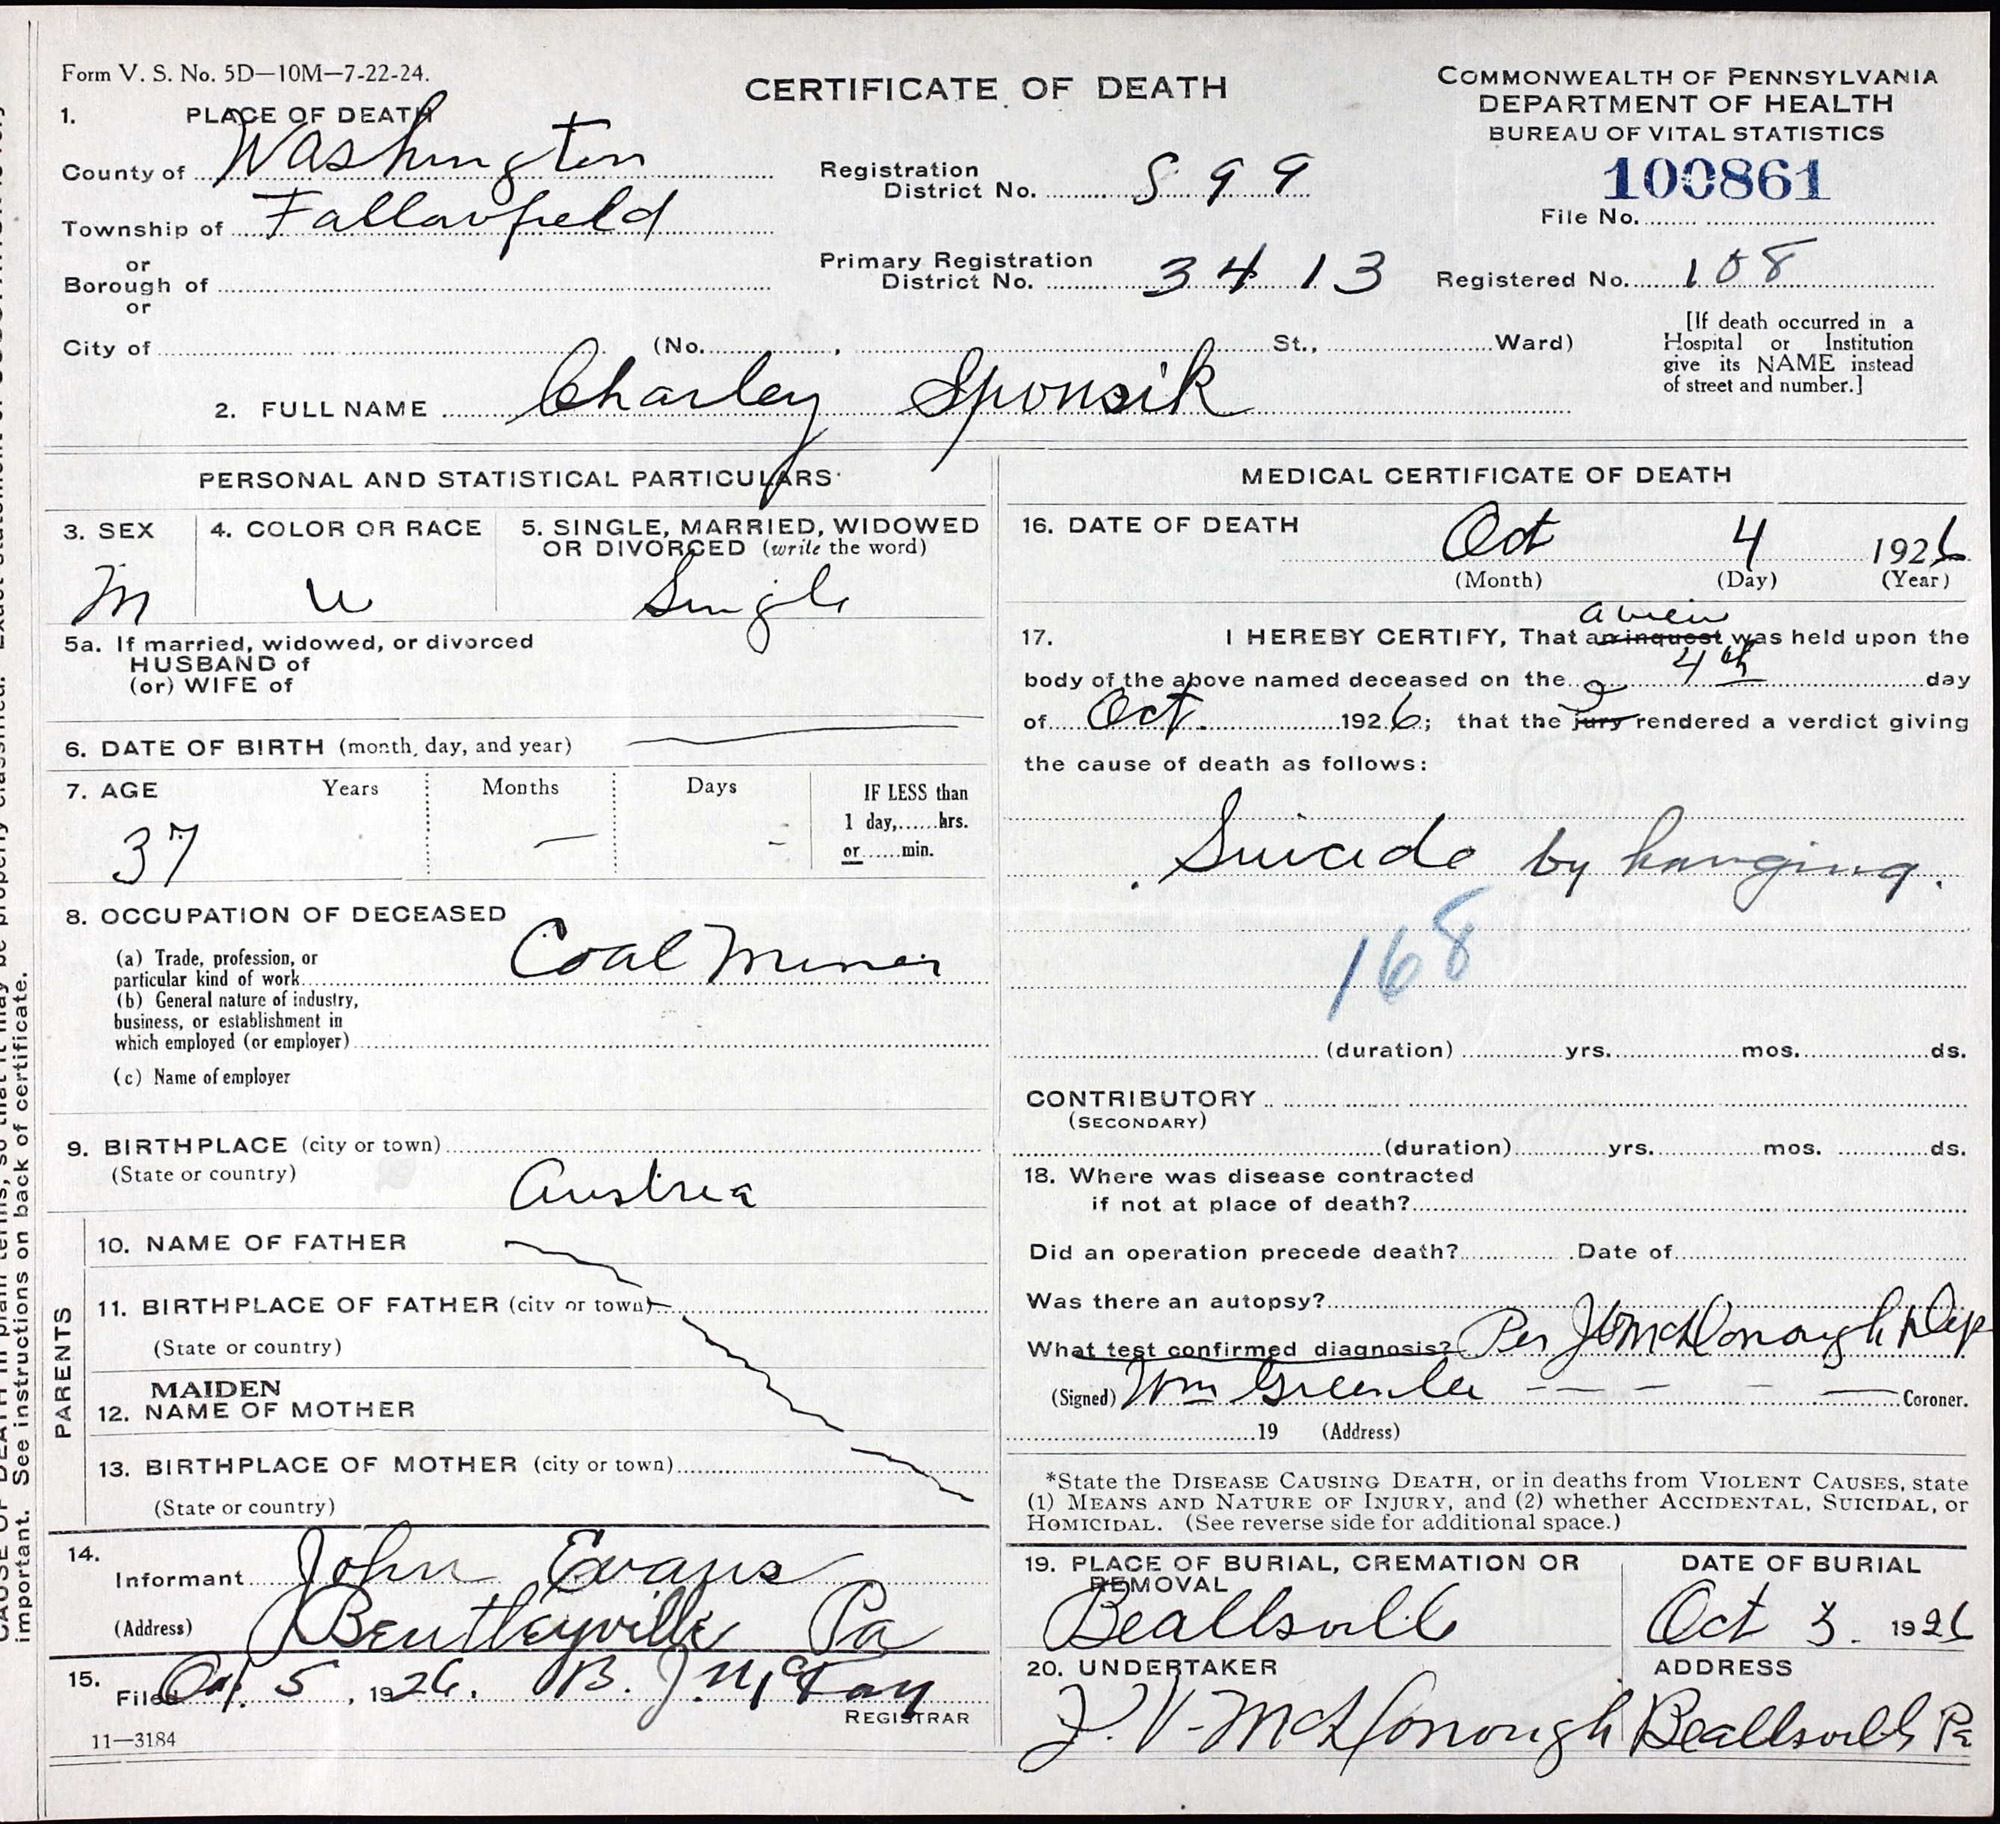 Form V. S. No. 5D—10M—7-22-24.
CERTIFICATE OF DEATH
COMMONWEALTH OF PENNSYLVANIA
DEPARTMENT OF HEALTH
BUREAU OF VITAL STATISTICS
100861
File No.
1. PLACE OF DEATH
County of Washington
Township of Fallowfield
or
Borough of
or
City of (No. , St., Ward)
Registration
District No. 899
Primary Registration
District No. 3413
Registered No. 108
[If death occurred in a
Hospital or Institution
give its NAME instead
of street and number.]
2. FULL NAME Charley Sponsik
PERSONAL AND STATISTICAL PARTICULARS
3. SEX
M
4. COLOR OR RACE
W
5. SINGLE, MARRIED, WIDOWED
OR DIVORCED (write the word)
Single
5a. If married, widowed, or divorced
HUSBAND of
(or) WIFE of
6. DATE OF BIRTH (month, day, and year) —
7. AGE Years Months Days
37 — -
IF LESS than
1 day,......hrs.
or......min.
8. OCCUPATION OF DECEASED
(a) Trade, profession, or
particular kind of work Coal Miner
(b) General nature of industry,
business, or establishment in
which employed (or employer)
(c) Name of employer
9. BIRTHPLACE (city or town)
(State or country) Austria
PARENTS
10. NAME OF FATHER
11. BIRTHPLACE OF FATHER (city or town)
(State or country)
12. MAIDEN
NAME OF MOTHER
13. BIRTHPLACE OF MOTHER (city or town)
(State or country)
14.
Informant John Evans
(Address) Bentleyville Pa
15.
Filed Oct. 5, 1926. B. J. McKay
REGISTRAR
11—3184
MEDICAL CERTIFICATE OF DEATH
16. DATE OF DEATH Oct 4 1926
(Month) (Day) (Year)
a view
17. I HEREBY CERTIFY, That an inquest was held upon the
body of the above named deceased on the 4th day
of Oct. 1926; that the jury rendered a verdict giving
the cause of death as follows:
Suicide by hanging.
168
(duration) yrs. mos. ds.
CONTRIBUTORY
(SECONDARY)
(duration) yrs. mos. ds.
18. Where was disease contracted
if not at place of death?
Did an operation precede death? Date of
Was there an autopsy?
What test confirmed diagnosis? Per McDonough Dep
(Signed) Wm Greenlee Coroner.
19 (Address)
*State the DISEASE CAUSING DEATH, or in deaths from VIOLENT CAUSES, state
(1) MEANS AND NATURE OF INJURY, and (2) whether ACCIDENTAL, SUICIDAL, or
HOMICIDAL. (See reverse side for additional space.)
19. PLACE OF BURIAL, CREMATION OR
REMOVAL
Beallsville
DATE OF BURIAL
Oct 5. 1926
20. UNDERTAKER
J. V. McDonough
ADDRESS
Beallsville Pa
important. See instructions on back of certificate.